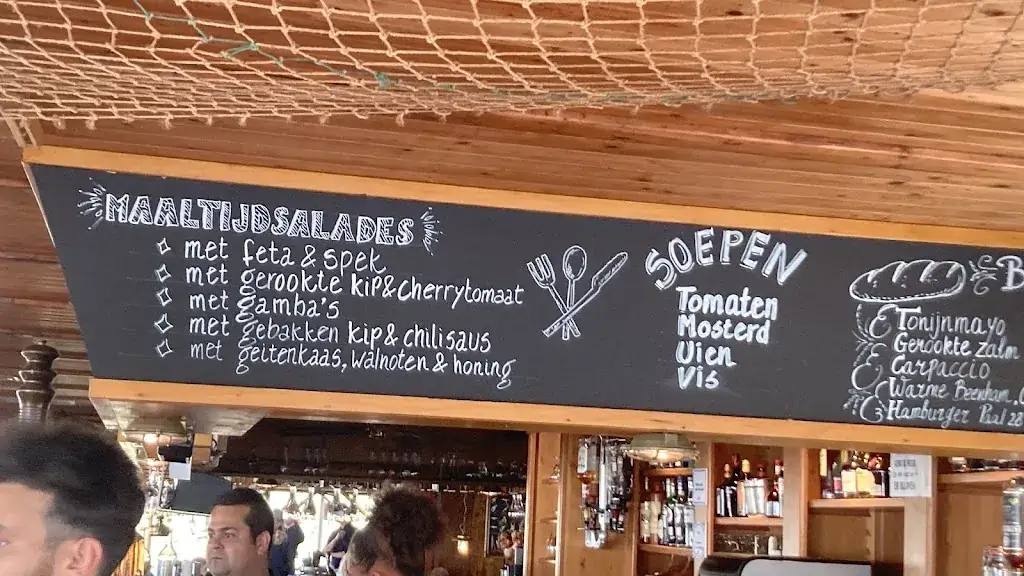 MAALTIJDSALADES
met feta & spek
met gerookte kip & cherrytomaat
met gamba's
met gebakken kip & chilisaus
met geitenkaas, walnoten & honing
SOEPEN
Tomaten
Mosterd
Uien
Vis
B
Tonijnmayo
Gerookte zalm
Carpaccio
Warme Beenham
Hamburger Paal 28